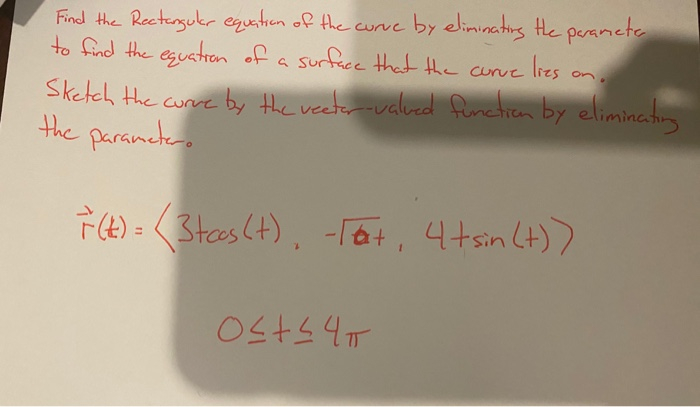 Find the Rectangular equation of the curve by eliminating the paramete
to find the equation of a surface that the curve lies on.
Sketch the curve by the vector-valued function by eliminating
the parameter.
r⃗(t) = ⟨3tcos(t), -√6t, 4tsin(t)⟩
0≤t≤4π